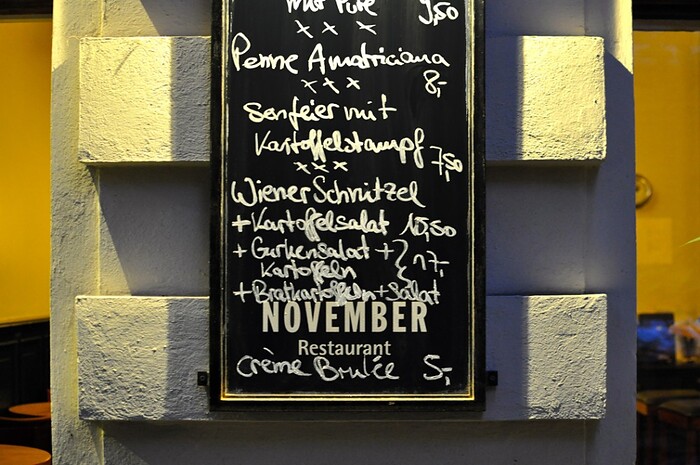 mit Püre 9,50
x x x
Penne Amatriciana
8,-
x x x
Senfeier mit
Kartoffelstampf 7,50
x x x
Wiener Schnitzel
+ Kartoffelsalat 15,50
+ Gurkensalat +
Kartoffeln } 17,-
+ Bratkartoffeln + Salat
NOVEMBER
Restaurant
Crème Brulée 5,-